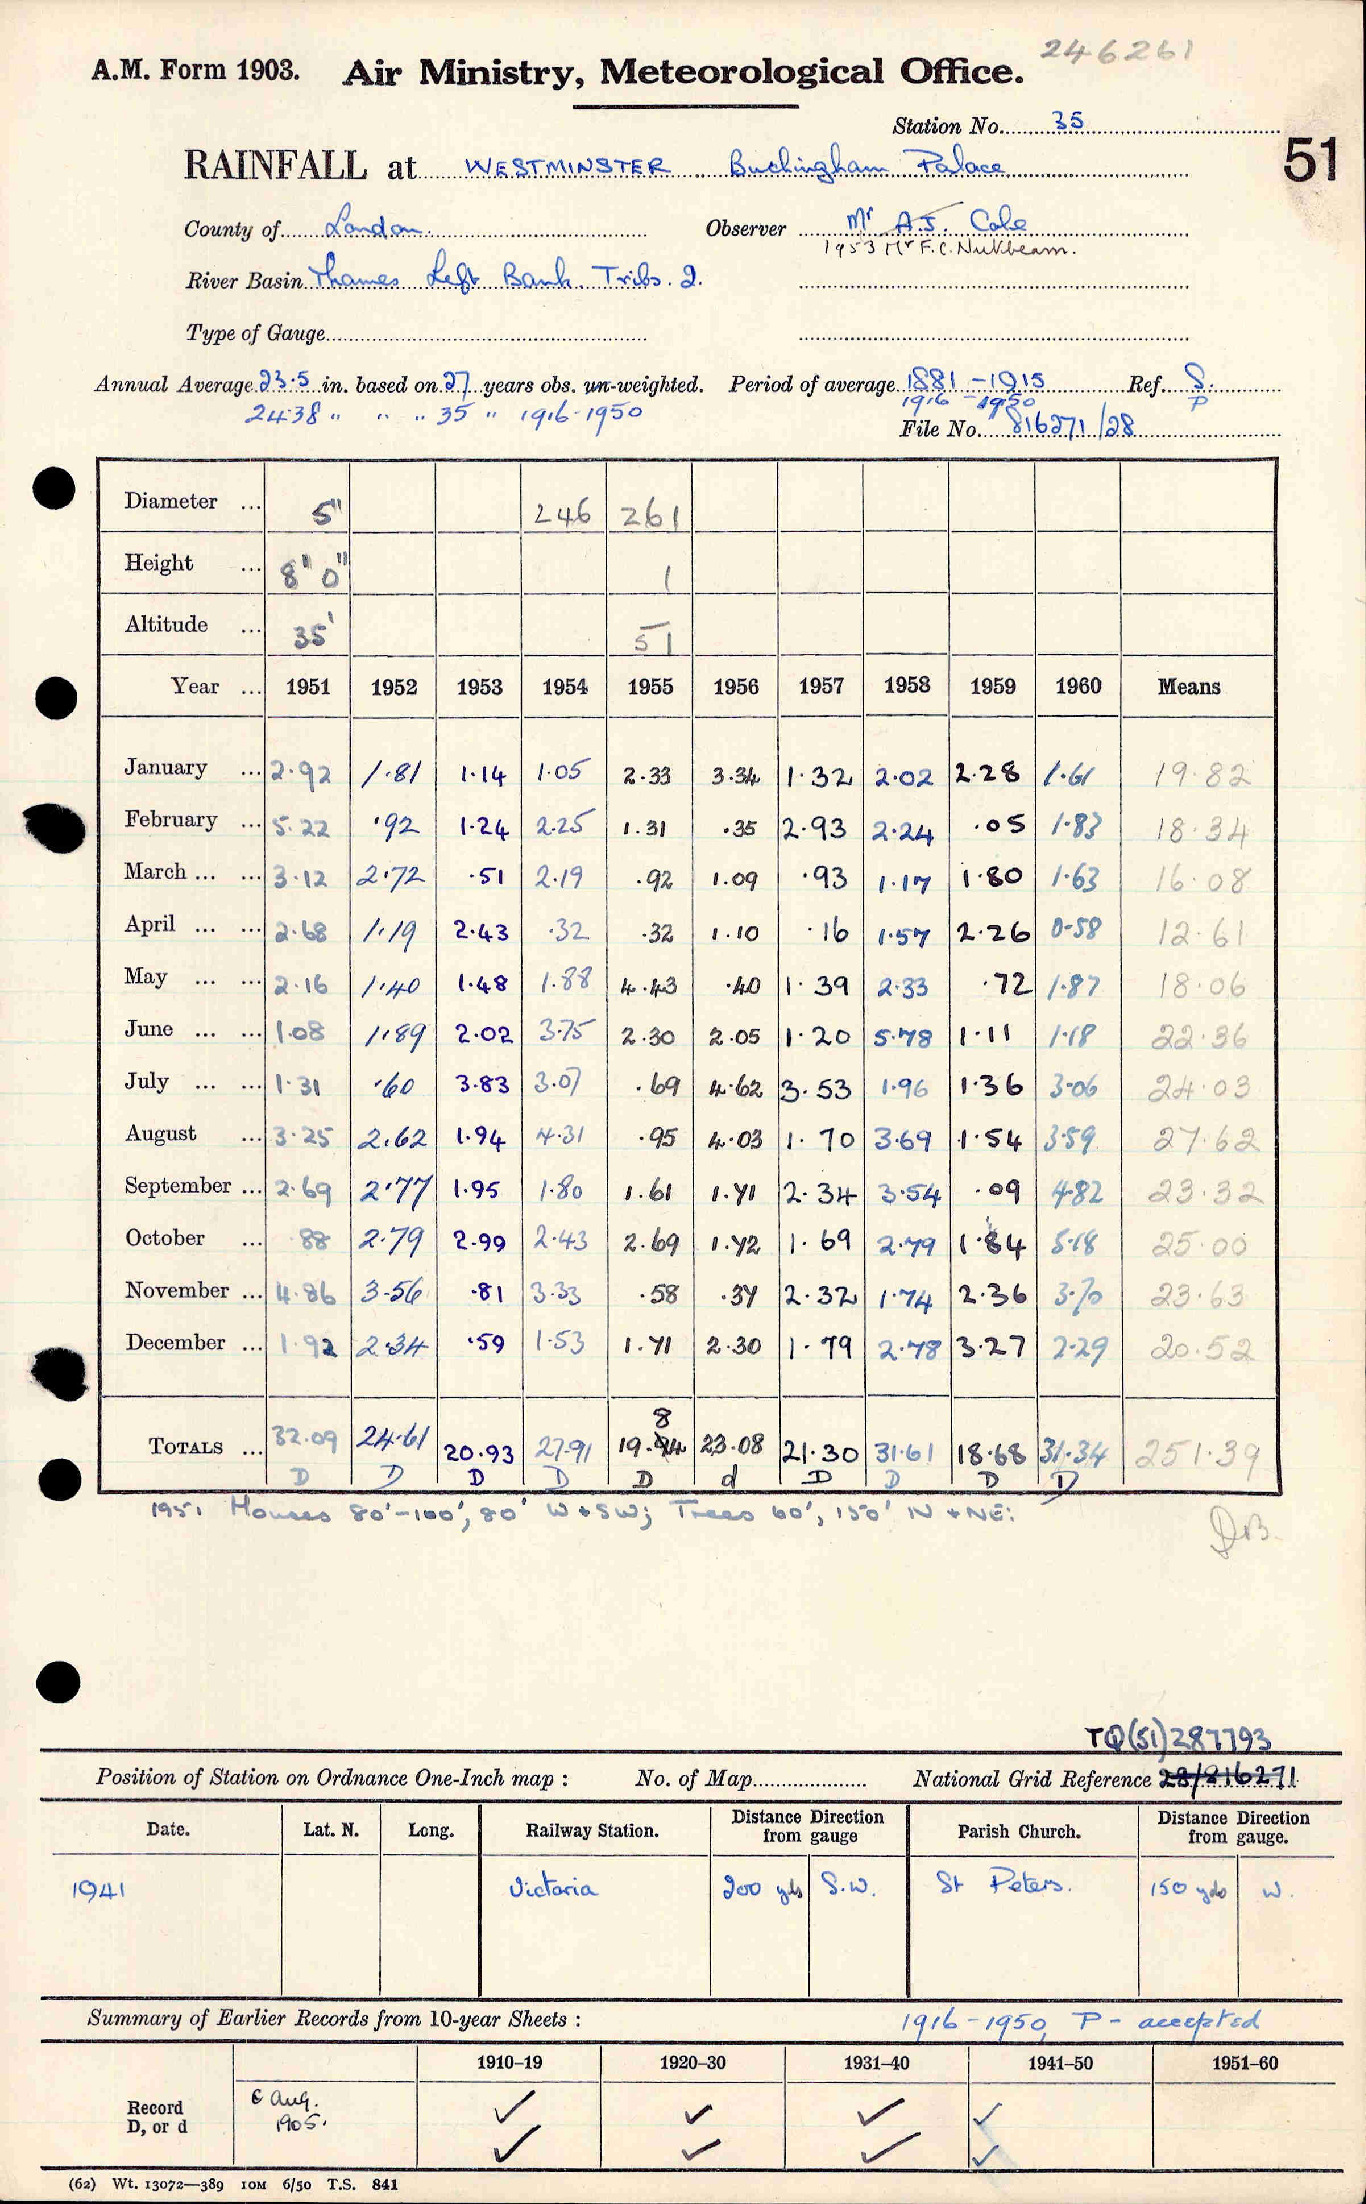 246261
A.M. Form 1903. Air Ministry, Meteorological Office.
Station No. 35
51
RAINFALL at WESTMINSTER Buckingham Palace
County of London Observer Mr A.J. Cole
1953 Mr F.C. Nukbeam.
River Basin Thames Left Bank Tribs. 2.
Type of Gauge
Annual Average 23.5 in. based on 27 years obs. un-weighted. Period of average 1881-1915 Ref. S.
24.38 " " " 35 " 1916-1950 1916-1950 P
File No. 816271/28
Diameter ... 5" 246 261
Height ... 8" 0" 1
Altitude ... 35' 51
Year ... 1951 1952 1953 1954 1955 1956 1957 1958 1959 1960 Means
January ... 2.92 1.81 1.14 1.05 2.33 3.34 1.32 2.02 2.28 1.61 19.82
February ... 5.22 .92 1.24 2.25 1.31 .35 2.93 2.24 .05 1.83 18.34
March ... ... 3.12 2.72 .51 2.19 .92 1.09 .93 1.17 1.80 1.63 16.08
April ... ... 2.68 1.19 2.43 .32 .32 1.10 .16 1.57 2.26 0.58 12.61
May ... ... 2.16 1.40 1.48 1.88 4.43 .40 1.39 2.33 .72 1.87 18.06
June ... ... 1.08 1.89 2.02 3.75 2.30 2.05 1.20 5.78 1.11 1.18 22.36
July ... ... 1.31 .60 3.83 3.07 .69 4.62 3.53 1.96 1.36 3.06 24.03
August ... 3.25 2.62 1.94 4.31 .95 4.03 1.70 3.69 1.54 3.59 27.62
September ... 2.69 2.77 1.95 1.80 1.61 1.71 2.34 3.54 .09 4.82 23.32
October ... .88 2.79 2.99 2.43 2.69 1.72 1.69 2.79 1.84 5.18 25.00
November ... 4.86 3.56 .81 3.33 .58 .37 2.32 1.74 2.36 3.70 23.63
December ... 1.92 2.34 .59 1.53 1.71 2.30 1.79 2.78 3.27 2.29 20.52
8
TOTALS ... 32.09 24.61 20.93 27.91 19.94 23.08 21.30 31.61 18.68 31.34 251.39
D D D D D d D D D D
1951 Houses 80'-100', 80' W + SW; Trees 60', 150' N + NE:
TQ(51)287793
Position of Station on Ordnance One-Inch map : No. of Map National Grid Reference 28/816271
Date. Lat. N. Long. Railway Station. Distance Direction from gauge Parish Church. Distance Direction from gauge.
1941 Victoria 200 yds S.W. St Peters. 150 yds W.
Summary of Earlier Records from 10-year Sheets : 1916-1950, P - accepted
1910–19 1920–30 1931–40 1941–50 1951–60
Record c Aug. ✓ ✓ ✓ ✓
D, or d 1905. ✓ ✓ ✓ ✓
(62) Wt. 13072—389 10M 6/50 T.S. 841